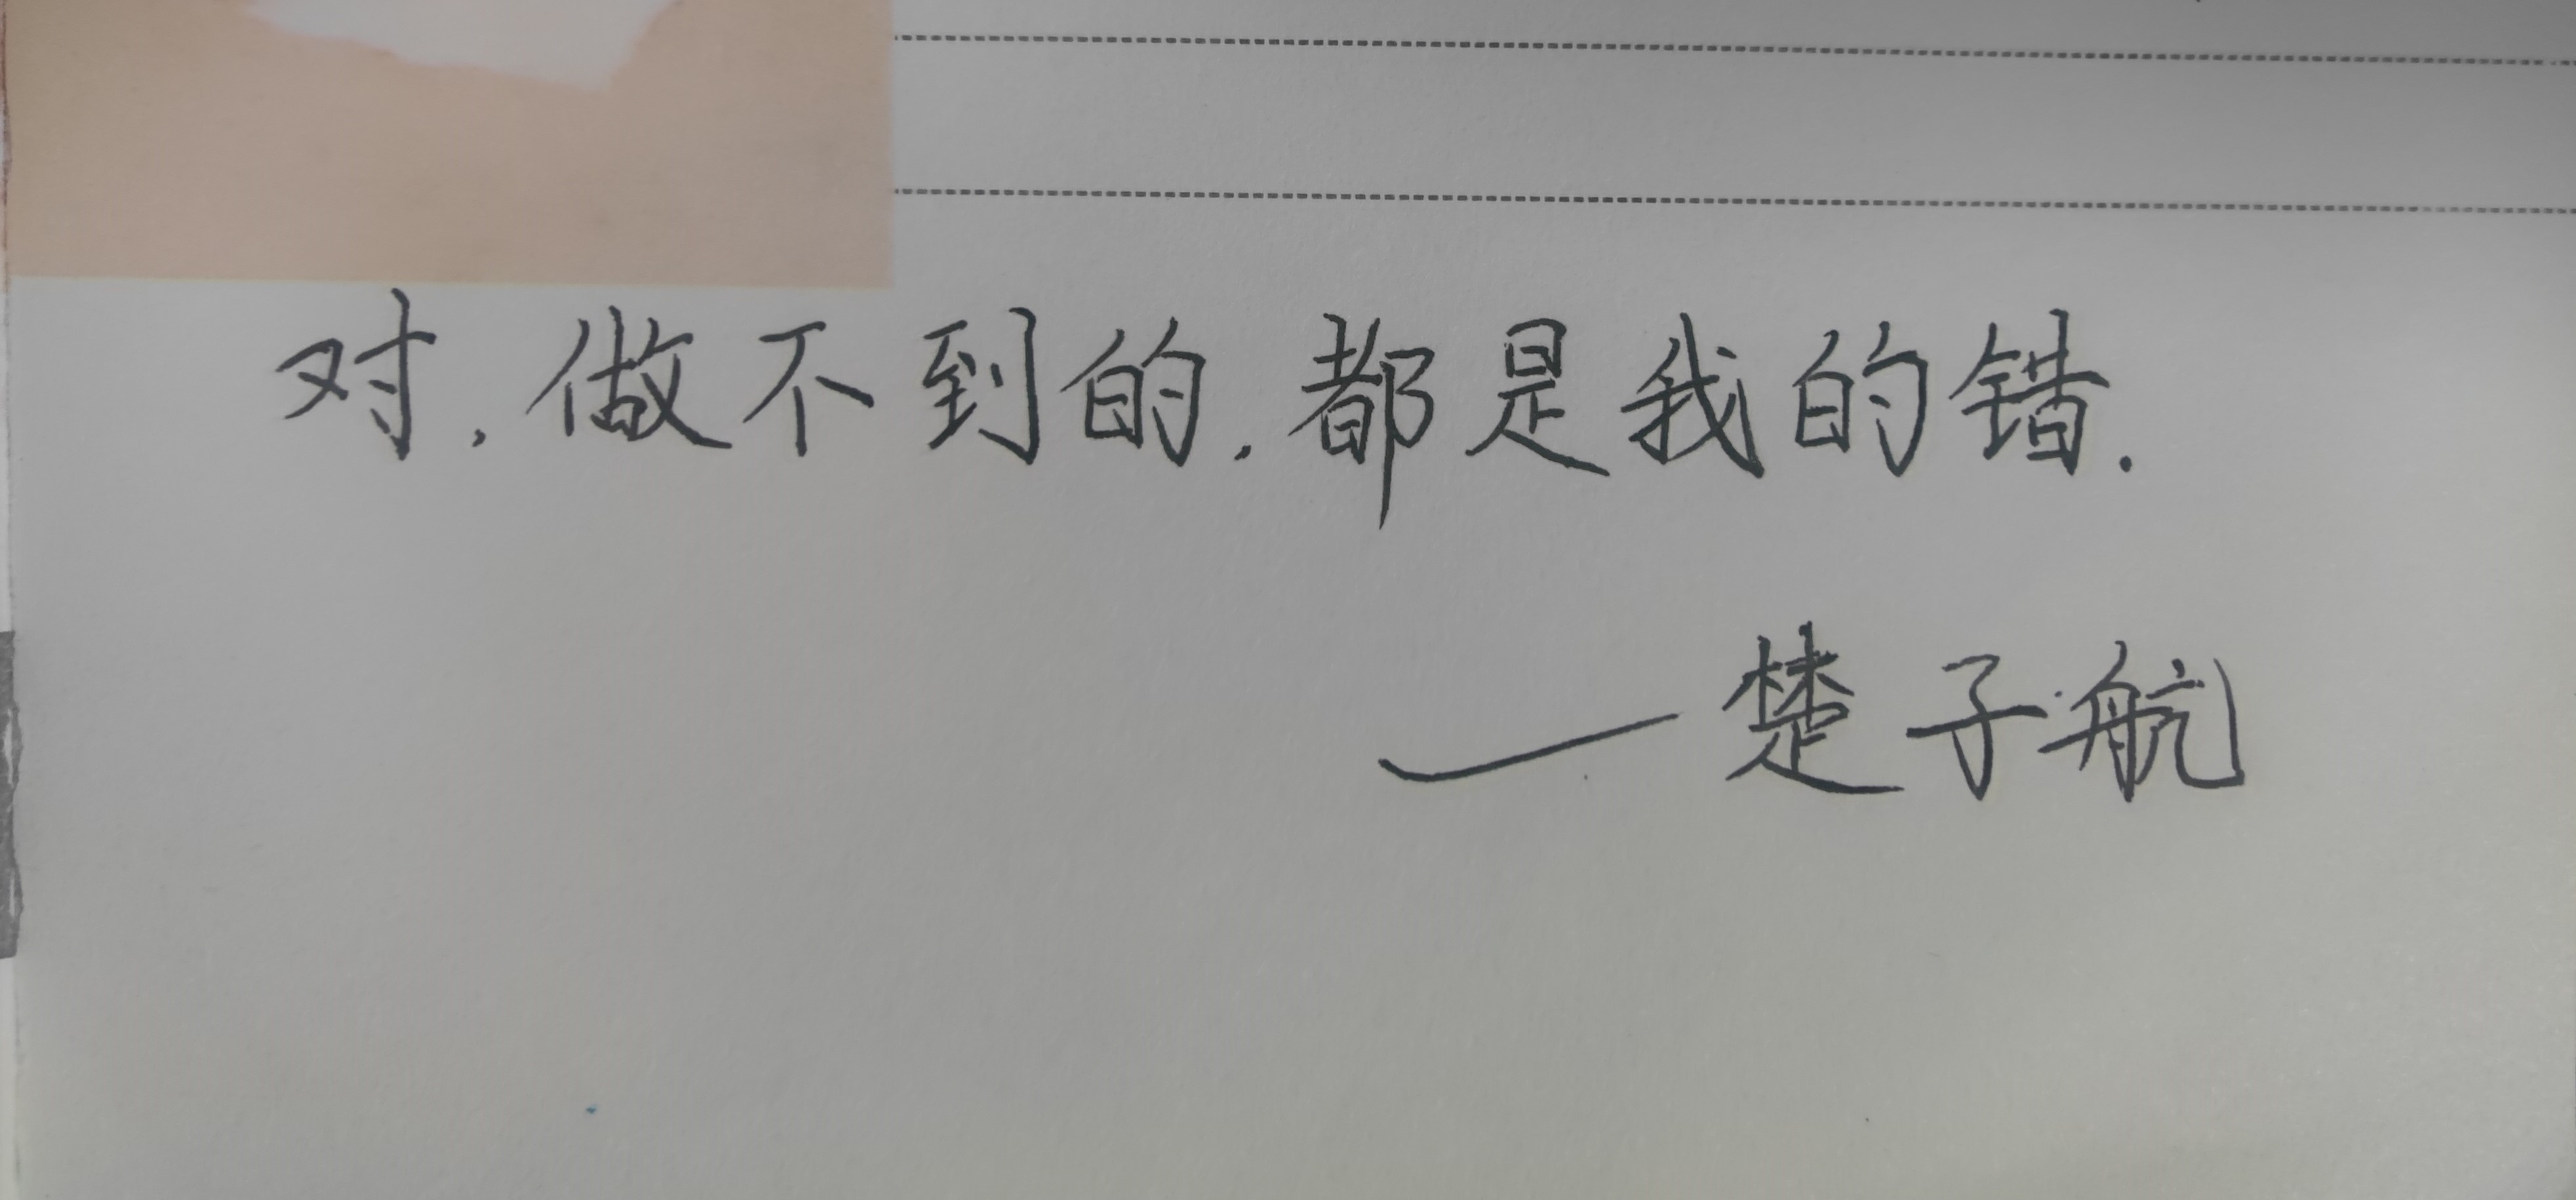 对,做不到的,都是我的错.
—楚子航